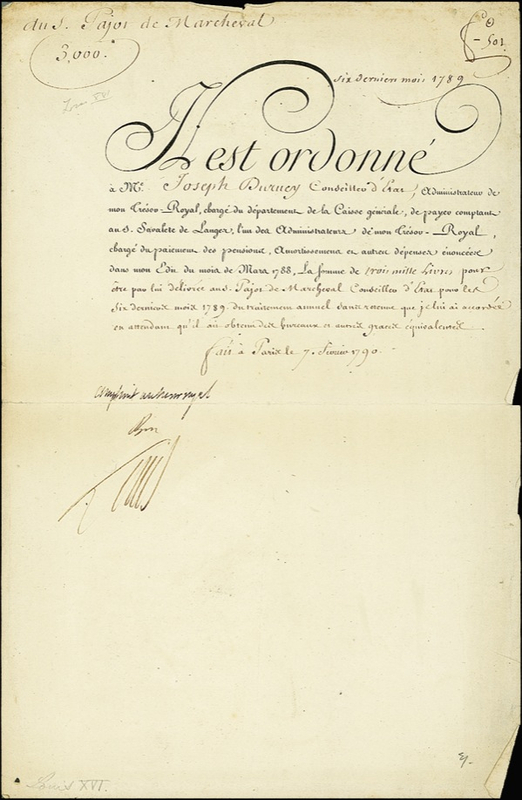 au S. Pajot de Marcheval
3,000.
501.
Six derniers mois 1789
Il est ordonné
à Mr. Joseph Duruey Conseiller d'Etat, Administrateur de
mon Trésor-Royal, chargé du département de la Caisse générale, de payer comptant
au S. Savalete de Langes, l'un des Administrateurs de mon Trésor-Royal,
chargé du paiement des pensions, Amortissemens et autres dépenses énoncées
dans mon Edit du mois de Mars 1788, La somme de trois mille Livres pour
être par lui délivrée au S. Pajot de Marcheval Conseiller d'Etat pour les
Six derniers mois 1789. du traitement annuel sans retenue que je lui ai accordé
en attendant qu'il ait obtenu des bureaux et autres graces équivalentes.
fait à Paris le 7. Fevrier 1790.
Bon
Louis
Louis XVI.